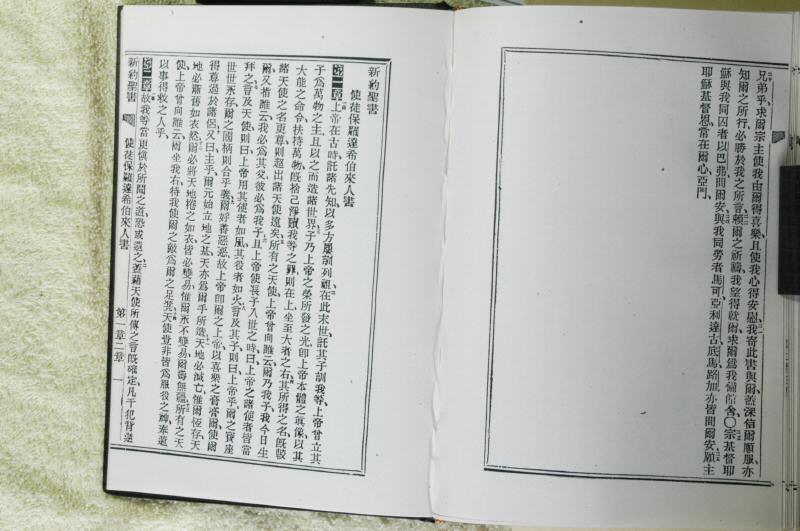 兄弟乎、求爾宗主使我由爾得喜樂、且使我心得安慰、我寄此書與爾、蓋深信爾順服、亦
知爾之所行、必勝於我之所言、賴爾之祈禱、我望得就爾、求爾爲我備館舍、〇宗基督耶
穌與我同囚者以巴弗問爾安、與我同勞者馬可、亞利達古、底馬、路加、亦皆問爾安、願主
耶穌基督恩常在爾心、亞們、
新約聖書
使徒保羅達希伯來人書
第一章上帝在古時、託諸先知、以多方屢訓列祖、在此末世、託其子訓我等、上帝曾立其
子爲萬物之主、且以之而造諸世界、子乃上帝之榮所發之光、卽上帝本體之眞像、以其
大能之命令、扶持萬物、旣捨己淨贖我等之罪、則在上坐至大者之右、其所得之名、旣駿
諸天使之名更尊、則超出諸天使遠矣、所有之天使、上帝曾向誰云、爾乃我子、我今日生
爾、又指誰云、我必爲其父、彼必爲我子、且上帝使長子入世之時、曰、上帝之諸使者皆當
拜之、言及天使、則曰、上帝用其使者如風、其役者如火、言及其子、則曰、上帝乎、爾之寶座
世世永存、爾之國柄則合乎義、爾好善惡惡、故上帝卽爾之上帝、以喜樂之膏膏爾、使爾
得尊過於諸侶、又曰、主乎、爾元始立地之基、天亦爲爾手所造、天地必滅亡、惟爾恆存、天
地必漸舊如衣然、爾必將天地捲之如衣、皆必變易、惟爾永不變易、爾壽無疆、所有之天
使、上帝曾向誰云、爾坐我右、待我使爾之敵爲爾之足凳、天使豈非皆爲服役之神、奉遣
以事得救之人乎、
第二章故我等當更愼於所聞之道、恐或遺之、蓋藉天使所傳之言旣確定、凡干犯背逆
新約聖書 使徒保羅達希伯來人書 第一章二章 一